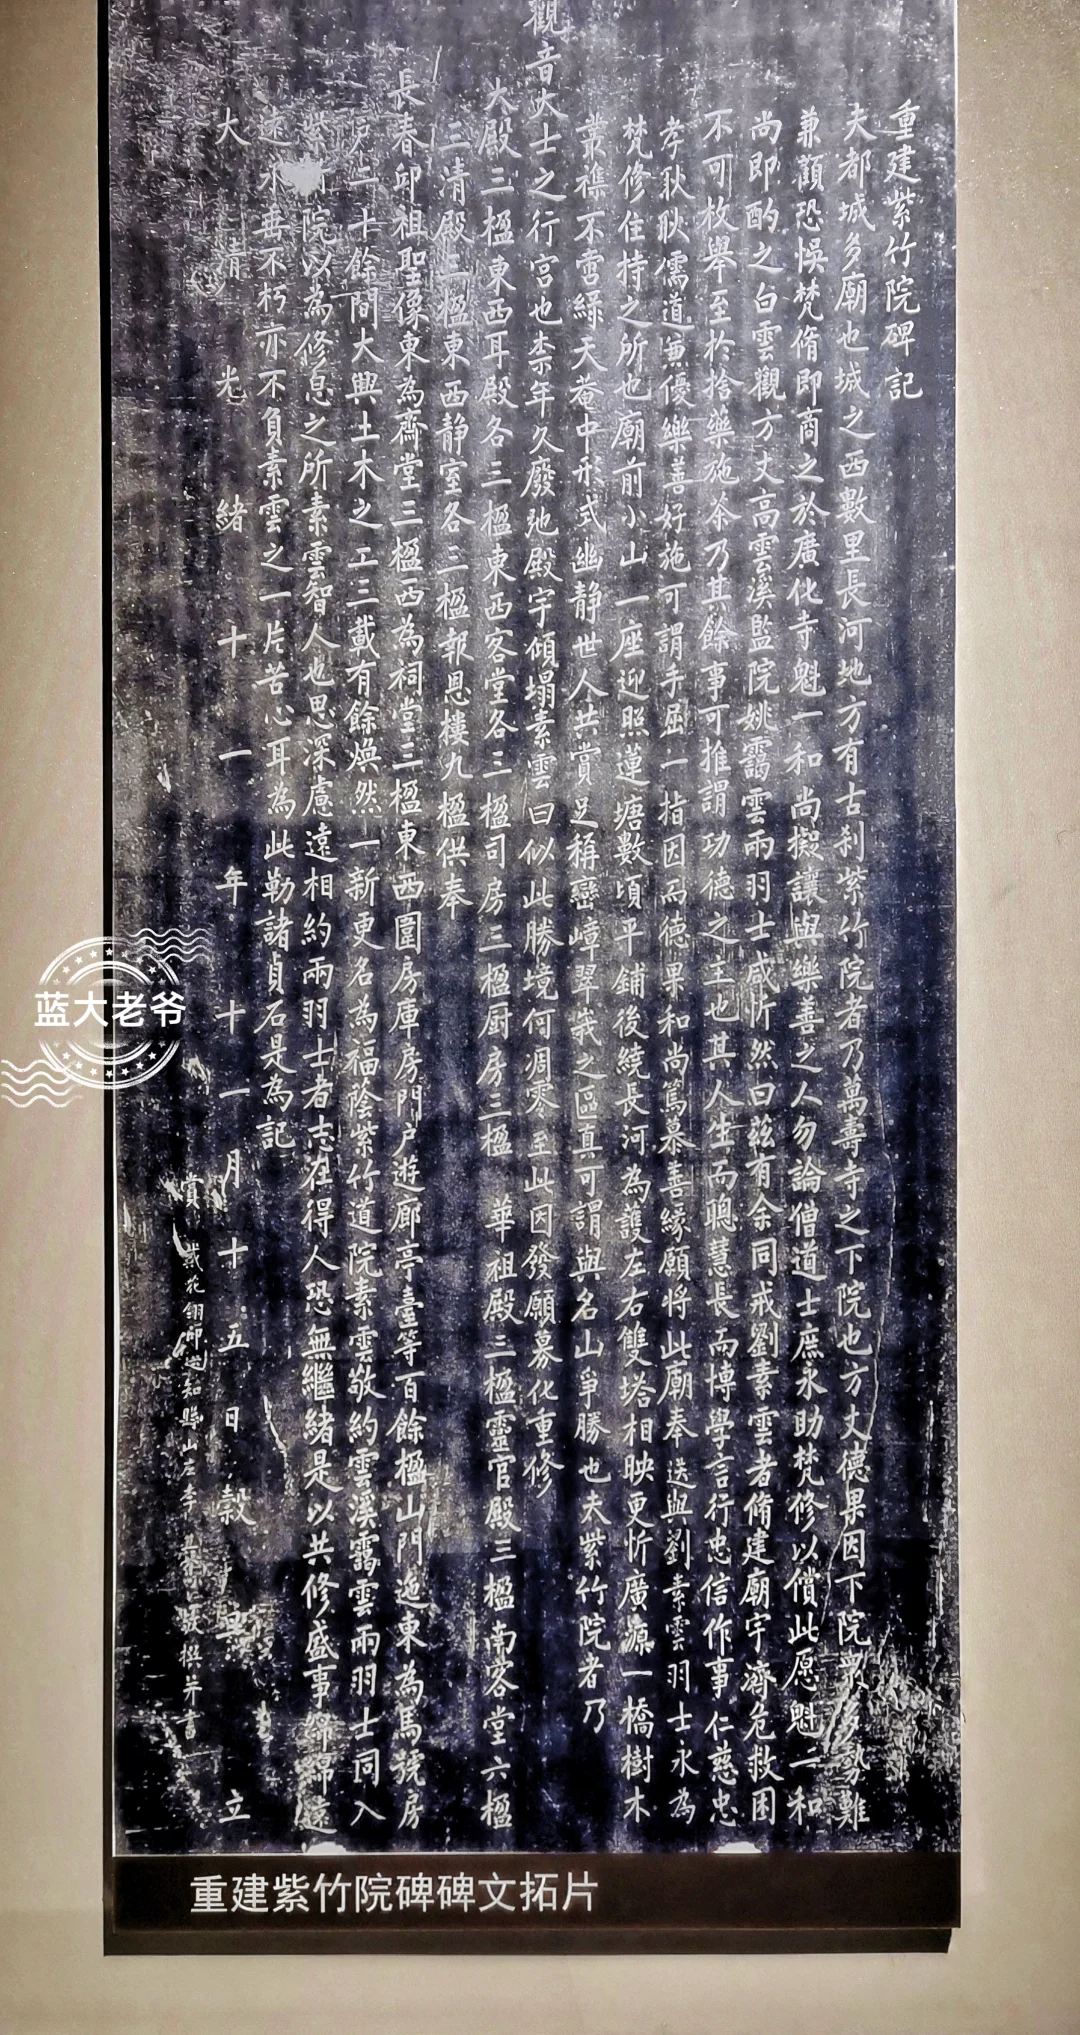 重建紫竹院碑記
夫都城多廟也城之西數里長河地方有古刹紫竹院者乃萬壽寺之下院也方丈德果因下院無多勢難
兼顧恐悞梵脩即商之於廣化寺魁一和尚擬讓與樂善之人勿論僧道士庶永助梵修以償此愿魁一和
尚即酌之白雲觀方丈高雲溪監院姚靄雲兩羽士咸忻然曰兹有余同戒劉素雲者脩建廟宇濟危救困
不可枚舉至於捨藥施茶乃其餘事可推謂功德之主也其人生而聰慧長而博學言行忠信作事仁慈忠
孝耿耿儒道兼優樂善好施可謂手屈一指因而德果和尚篤慕善緣願將此廟奉送與劉素雲羽士永為
梵修住持之所也廟前小山一座迎照蓮塘數頃平鋪後繞長河為護左右雙塔相映更忻廣源一橋樹木
叢襍不啻綠天菴中形式幽靜世人共賞足稱巒嶂翠峩之區真可謂與名山爭勝也夫紫竹院者乃
觀音大士之行宮也柰年久廢弛殿宇傾塌素雲曰似此勝境何凋零至此因發願募化重修
大殿三楹東西耳殿各三楹東西客堂各三楹司房三楹厨房三楹 華祖殿三楹靈官殿三楹南客堂六楹
三清殿三楹東西靜室各三楹報恩樓九楹供奉
長春邱祖聖像東為齋堂三楹西為祠堂三楹東西圍房庫房門户遊廊亭臺等百餘楹山門迤東為馬號房
戶二十餘間大興土木之工三載有餘煥然一新更名為福蔭紫竹道院素雲敬約雲溪靄雲兩羽士同入
紫竹院以為修息之所素雲智人也思深慮遠相約兩羽士者志在得人恐無繼緒是以共修盛事綿綿遠
永垂不朽亦不負素雲之一片苦心耳為此勒諸貞石是為記
大清光緒十一年十一月十五日穀旦立
賞戴花翎即選知縣山左李 撰并書
蓝大老爷
重建紫竹院碑碑文拓片